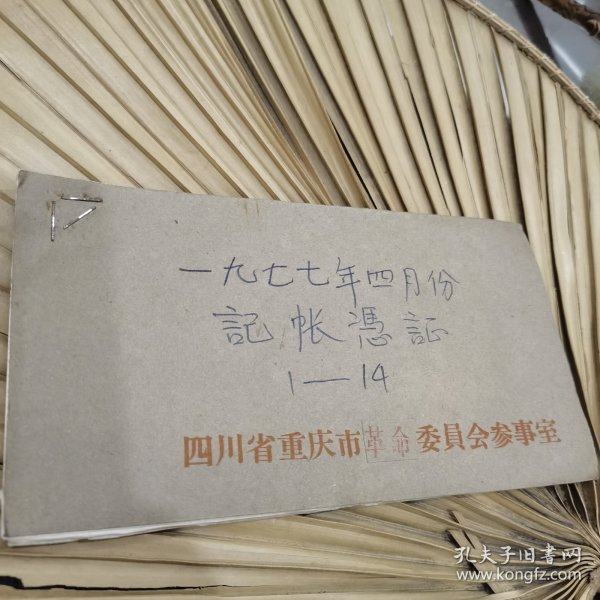 一九七七年四月份
記帐憑証
1—14
四川省重庆市革命委員会参事室
孔夫子旧书网
www.kongfz.com